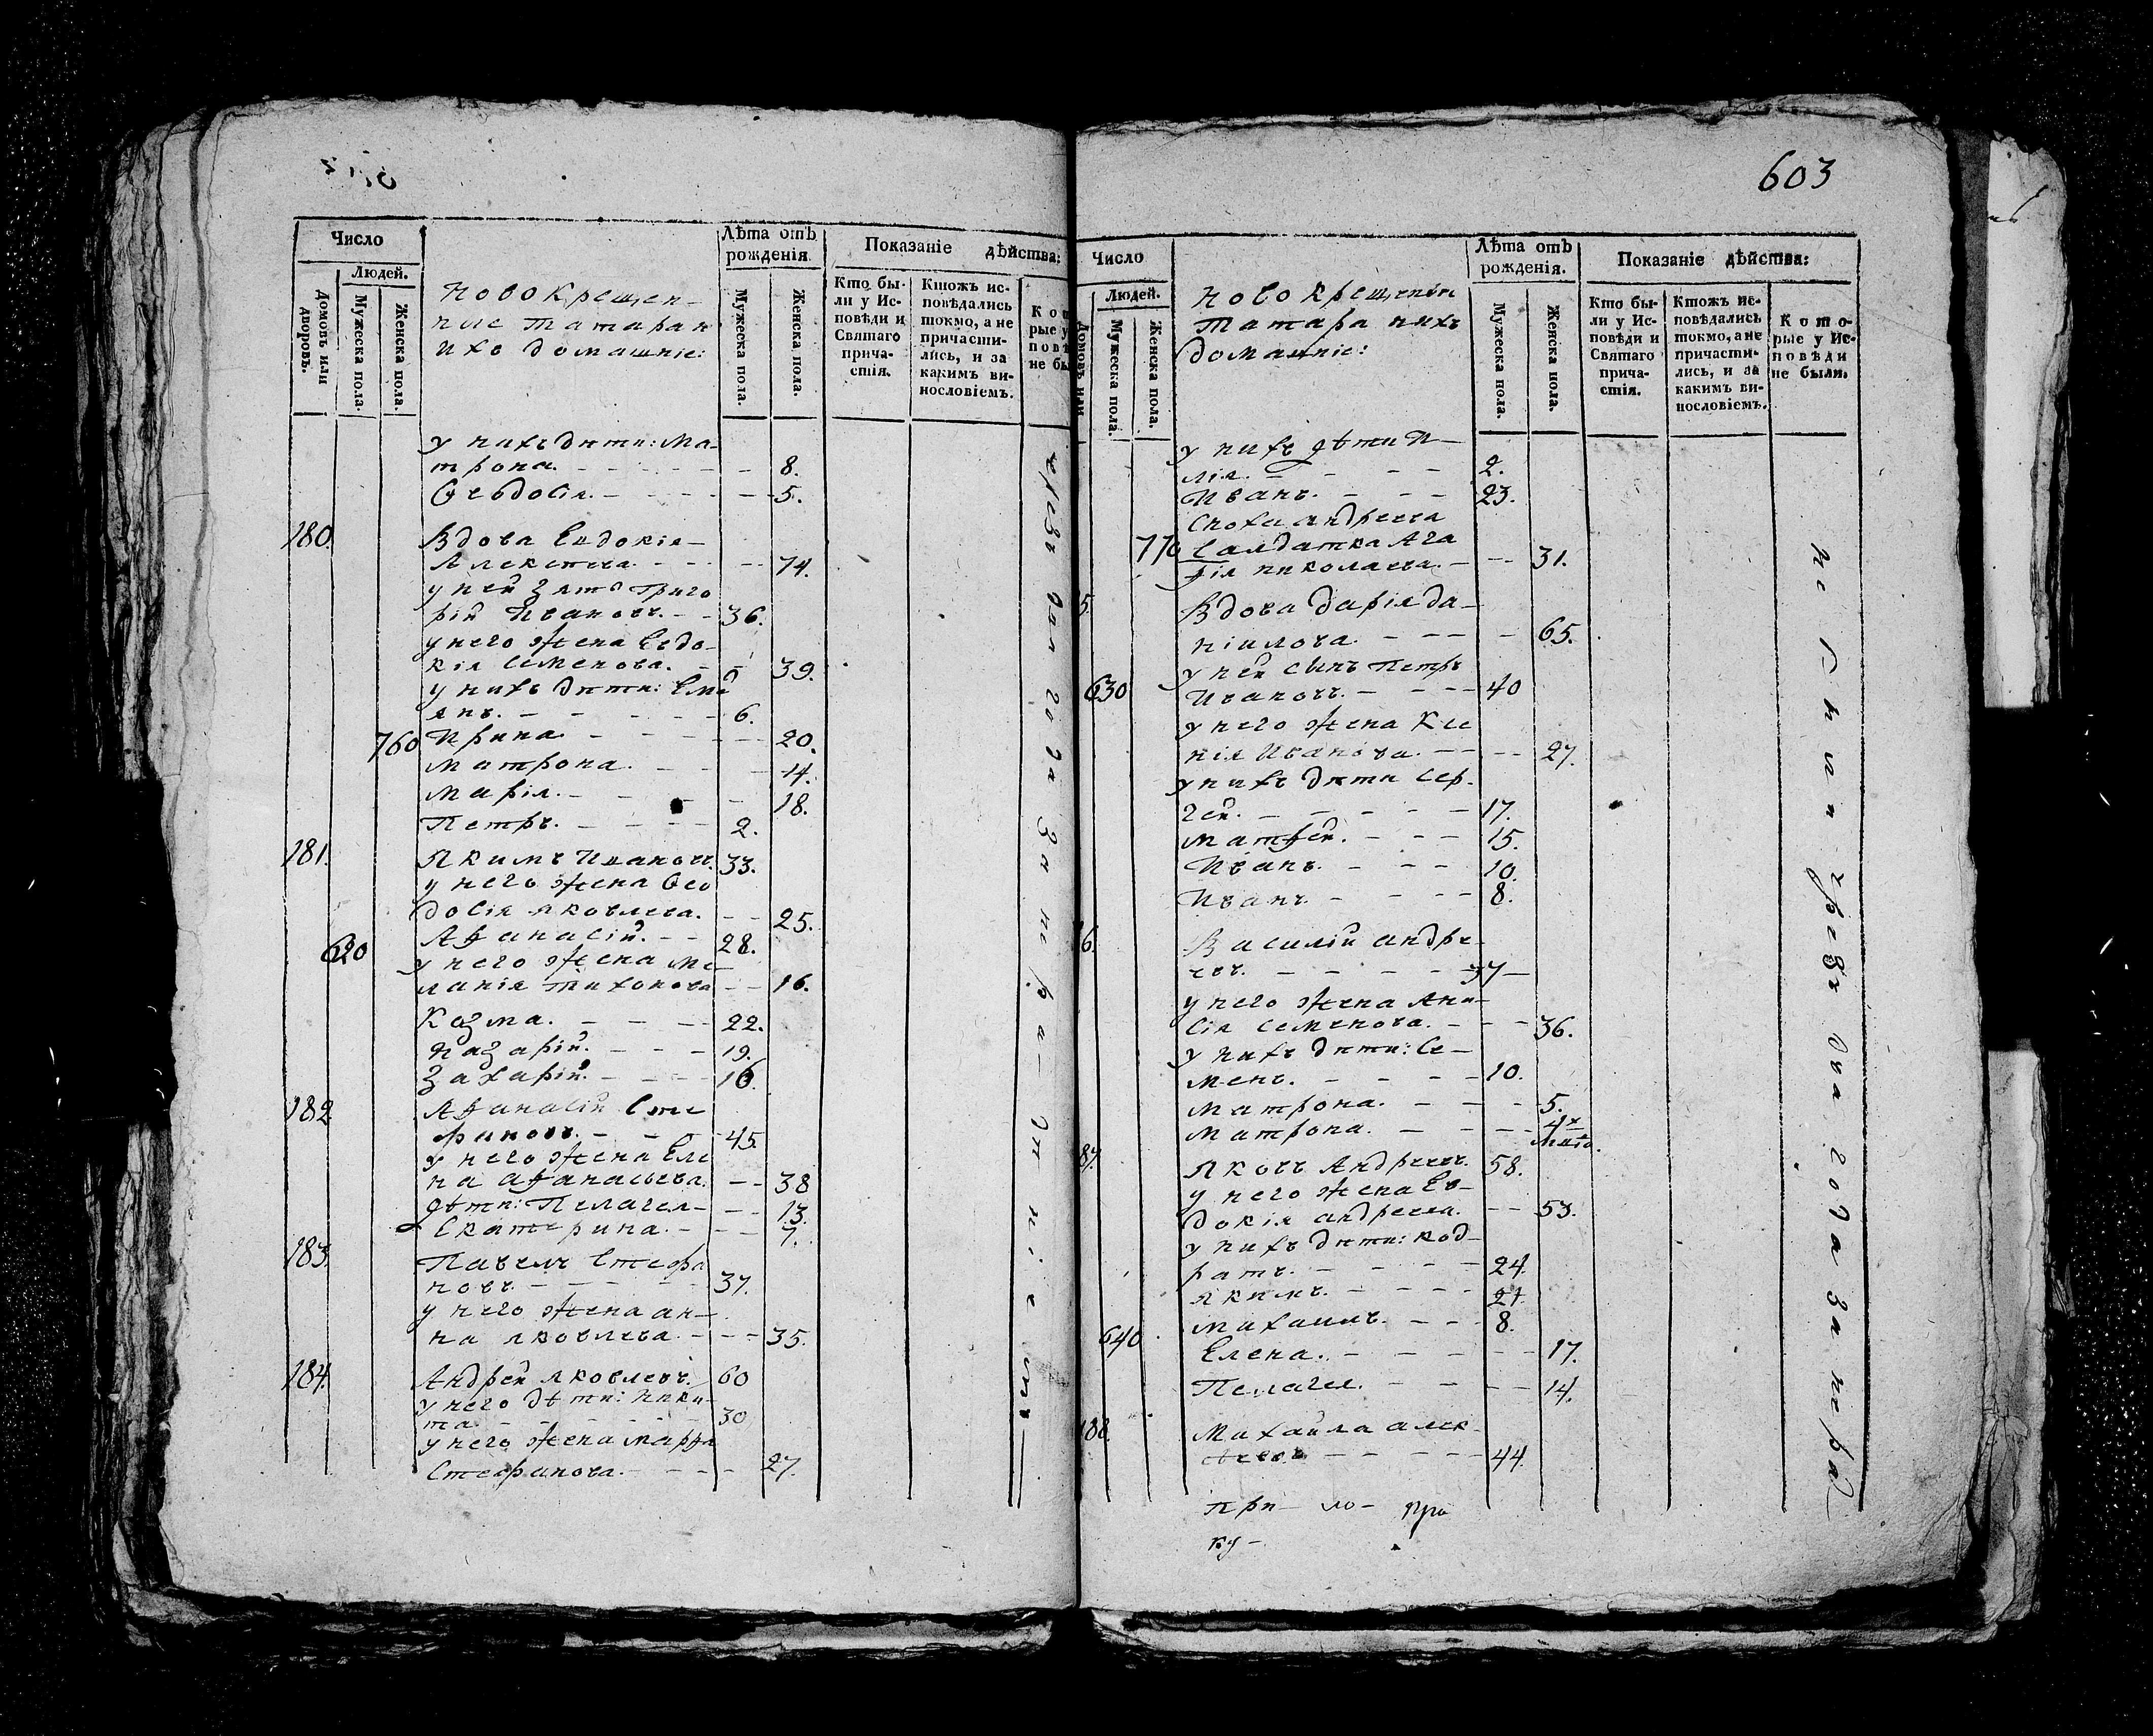 Число
Людей.
Домовъ или дворовъ.
Мужеска пола.
Женска пола.
Новокрещен-
ные татара и
ихъ домашніе:
Лѣта отъ
рожденія.
Мужеска пола.
Женска пола.
Показаніе дѣйства:
Кто бы-
ли у Ис-
повѣди и
Святаго
прича-
стія.
Ктожъ ис-
повѣдались
токмо, а не
причасти-
лись, и за
какимъ ви-
нословіемъ.
у нихъ дѣти: Ма-
трона. 8.
Феодосія. 5.
180. Вдова Евдокія
Алексѣева. 74.
у ней зять Григо
рій Ивановъ. 36.
у него жена Евдо-
кія Семенова. 39.
у нихъ дѣти: Емел
янъ. 6.
760 Ирина 20.
Матрона. 14.
Марія. 18.
Петръ. 2.
181. Якимъ Ивановъ. 33.
у него жена Фео
досія Яковлева. 25.
620 Афанасій. 28.
у него жена Ме-
ланія Тихонова 16.
Козма. 22.
Назарій. 19.
Захарій. 16.
182 Афанасій Сте
фановъ. 45.
у него жена Еле
на Афанасьева. 38
дѣти: Пелагея 13.
Екатерина. 7.
183. Павелъ Стефа
новъ. 37.
у него жена Ан-
на Яковлева. 35.
184. Андрей Яковлевъ. 60
у него дѣти: Ники-
та 30
у него жена Марфа
Стефанова. 27.
чрезъ два года за нера-
дѣніемъ
603
Число
Людей.
Домовъ или
Мужеска пола.
Женска пола.
Новокрещенные
татара и ихъ
домашніе:
Лѣта отъ
рожденія.
Мужеска пола.
Женска пола.
Показаніе дѣйства:
Кто бы-
ли у Ис-
повѣди и
Святаго
прича-
стія.
Ктожъ ис-
повѣдались
токмо, а не
причасти-
лись, и за
какимъ ви-
нословіемъ.
Кото-
рые у Ис-
повѣди
не были.
у нихъ дѣти И-
лія. 2.
Иванъ. 23.
Сноха Андреева
770 Салдатка Ага
фія Николаева. 31.
5. Вдова Дарія Да-
ніилова. 65.
у ней сынъ Петръ
630 Ивановъ. 40
у него жена Ксе
нія Иванова. 27.
у нихъ дѣти Сер-
гей. 17.
Матфей. 15.
Иванъ. 10.
Иванъ. 8.
6. Василій Андре-
евъ. 37
у него жена Ани-
сія Семенова. 36.
у нихъ дѣти: Се-
менъ. 10.
Матрона. 5.
Матрона. 4х
87. Яковъ Андреевъ. 58.
у него жена Ев-
докія Андреева. 53.
у нихъ дѣти: Код-
ратъ. 24.
Якимъ. 21.
Михаилъ. 8.
640 Елена. 17.
Пелагея. 14.
188. Михайла Алек-
сѣевъ 44.
не были чрезъ два года за нерад